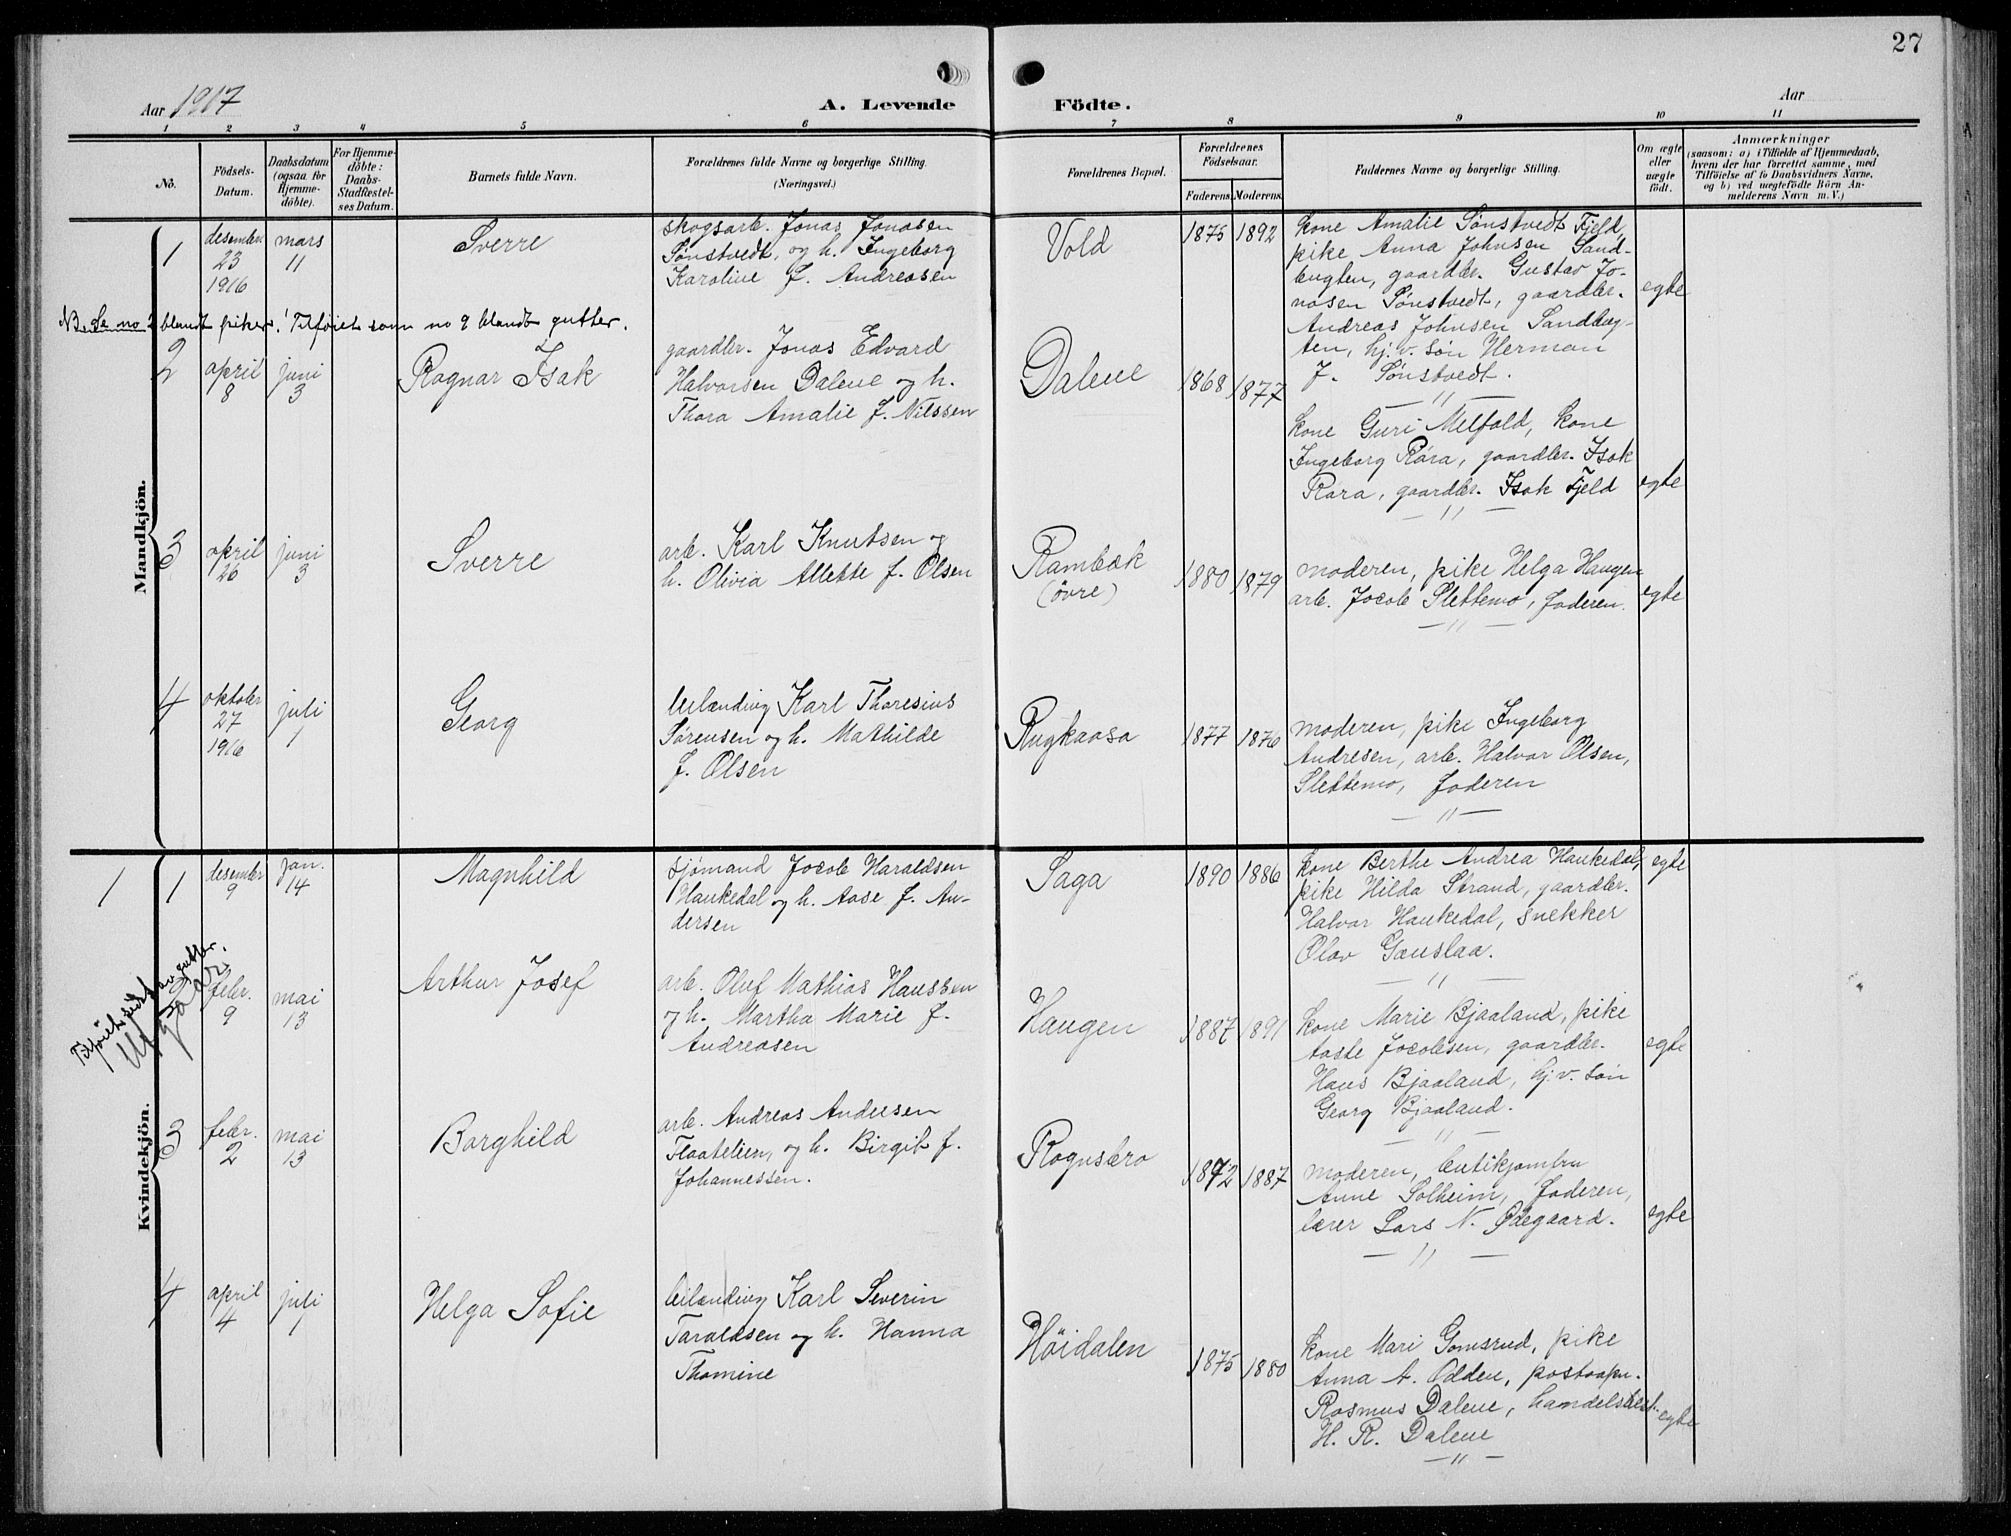 27
Aar 1917
A. Levende Födte.
Aar
1 2 3 4 5 6 7 8 9 10 11
No.
Födsels-Datum.
Daabsdatum (ogsaa for Hjemme-döbte).
For Hjemme-döbte: Daabs-Stadfæstel-ses Datum.
Barnets fulde Navn.
Forældrenes fulde Navne og borgerlige Stilling. (Næringsvei.)
Forældrenes Bopæl.
Forældrenes Födselsaar.
Faderens. Moderens.
Faddernes Navne og borgerlige Stilling.
Om ægte eller uægte födt.
Anmærkninger
(saasom: a) i Tilfælde af Hjemmedaab,
hvem der har forrettet samme, med
Tilföielse af to Daabsvidners Navne,
og b) ved uægtefödte Börn An-
melderens Navn m. V.)
Mandkjön.
1
desember
23
1916
mars
11
Sverre
skogsarb. Jonas Jonasen
Sønstvedt, og h. Ingeborg
Karoline f. Andreasen
Vold
1875 1892
kone Amalie Sønstvedt Fjeld,
pike Anna Johnsen Sand-
bugten, gaardbr. Gustav Jo-
nasen Sønstvedt, gaardbr.
Andreas Johnsen Sandbug-
ten, hj. v. søn Herman
J. Sønstvedt.
egte
N.B. Se no 2 blandt piker! Tilføiet som no 9 blandt gutter.
2
april
8
juni
3
Ragnar Isak
gaardbr. Jonas Edvard
Halvorsen Dalene og h.
Thora Amalie f. Nilssen
Dalene
1868 1877
kone Guri Melfald, kone
Ingeborg Rára, gaardbr. Isak
Rara, gaardbr. Isak Fjeld
egte
3
april
26
juni
3
Sverre
arb. Karl Knutsen og
h. Olivia Allette f. Olsen
Rambæk
(øvre)
1880 1879
moderen, pike Helga Haugen
arb. Jacob Slettemo, faderen.
egte
4
oktober
27
1916
juli
1
Georg
leilænding Karl Thoresius
Sørensen og h. Mathilde
f. Olsen
Rugkaasa
1877 1876
moderen, pike Ingeborg
Andresen, arb. Halvor Olsen,
Slettemo, faderen
Kvindekjön.
1
1
desember
9
jan.
14
Magnhild
sjømand Jacob Haraldsen
Haukedal og h. Aase f. An-
dersen
Saga
1890 1886
kone Berthe Andrea Haukedal,
pike Hilda Strand, gaardbr.
Halvor Haukedal, snekker
Olav Gaaslaa.
egte
Utgaar
2
febr.
9
mai
13
Arthur Josef
arb. Oluf Mathias Hansen
og h. Martha Marie f.
Andreasen
Haugen
1887 1891
kone Marie Bjaaland, pike
Aaste Jacobsen, gaardbr.
Hans Bjaaland, hj. v. søn
Georg Bjaaland.
egte
3
febr.
2
mai
13
Borghild
arb. Andreas Andersen
Flaatelien, og h. Birgit f.
Johannessen.
Rognsbro
1892 1887
moderen, butikjomfru
Anne Solheim, faderen,
lærer Lars N. Ødegaard.
egte
4
april
4
juli
1
Helga Sofie
leilænding Karl Severin
Taraldsen og h. Hanna
Thomine
Høidalen
1875 1880
kone Mari Gomsrud, pike
Anna A. Odden, postaapn.
Rasmus Dalene, handelsbest.
H. R. Dalene
egte